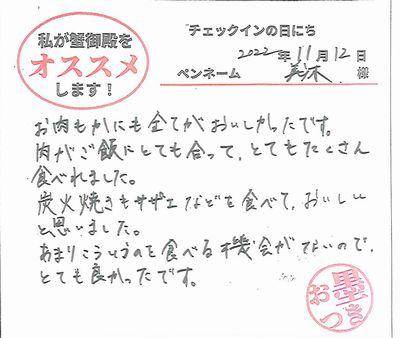 私が蟹御殿を
オススメ
します！
チェックインの日にち
2022年11月12日
ペンネーム 美木 様
お肉もかにも全てがおいしかったです。
肉がご飯にとても合って、とてもたくさん
食べれました。
炭火焼きもサザエなどを食べて、おいしい
と思いました。
あまりこういうのを食べる機会がないので、
とても良かったです。
お墨つき